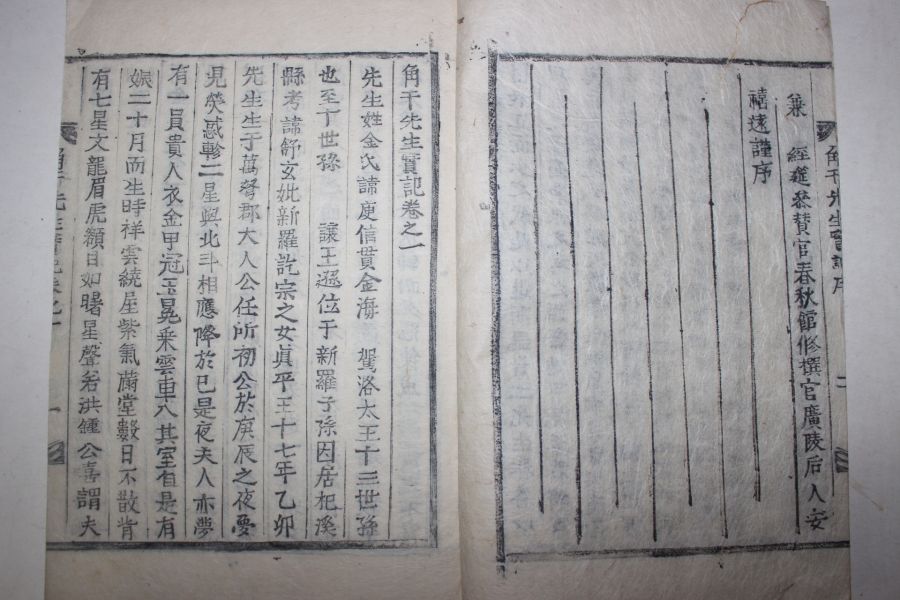 兼 經筵參賛官春秋館修撰官廣陵后人安
禧遠謹序
角干先生實記卷之一
先生姓金氏諱庾信貫金海 駕洛太王十三世孫
也至十世孫 讓王遜位于新羅子孫因居杞溪
縣考諱舒玄妣新羅訖宗之女眞平王十七年乙卯
先生生于萬弩郡大人公任所初公於庚辰之夜夢
見熒惑軫二星與北斗相應降於已是夜夫人亦夢
有一員貴人衣金甲冠玉冕乘雲車入其室自是有
娠二十月而生時祥雲繞屋紫氣滿堂數日不散背
有七星文龍眉虎額目如曙星聲若洪鍾 公喜謂夫